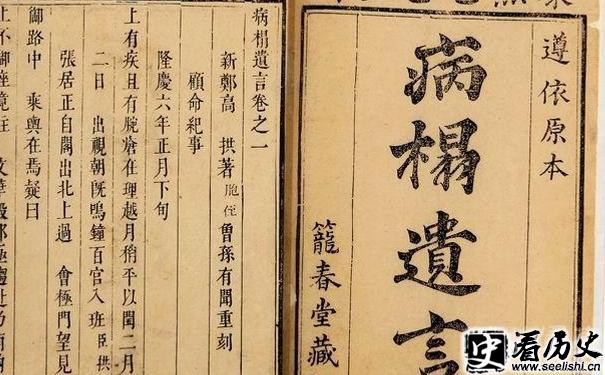 遵依原本
病榻遺言
籠春堂藏
病榻遺言卷之一
新鄭高 拱著 胞侄 曾孫有聞重刻
顧命紀事
隆慶六年正月下旬
上有疾且有腕瘡在理越月稍平以閏二月
二日 出視朝既鳴鐘百官入班臣拱
張居正自閣出北上過 會極門望見
御路中 乘輿在焉疑曰
上不御座竟往 文華殿
看历史
www.seelishi.cn